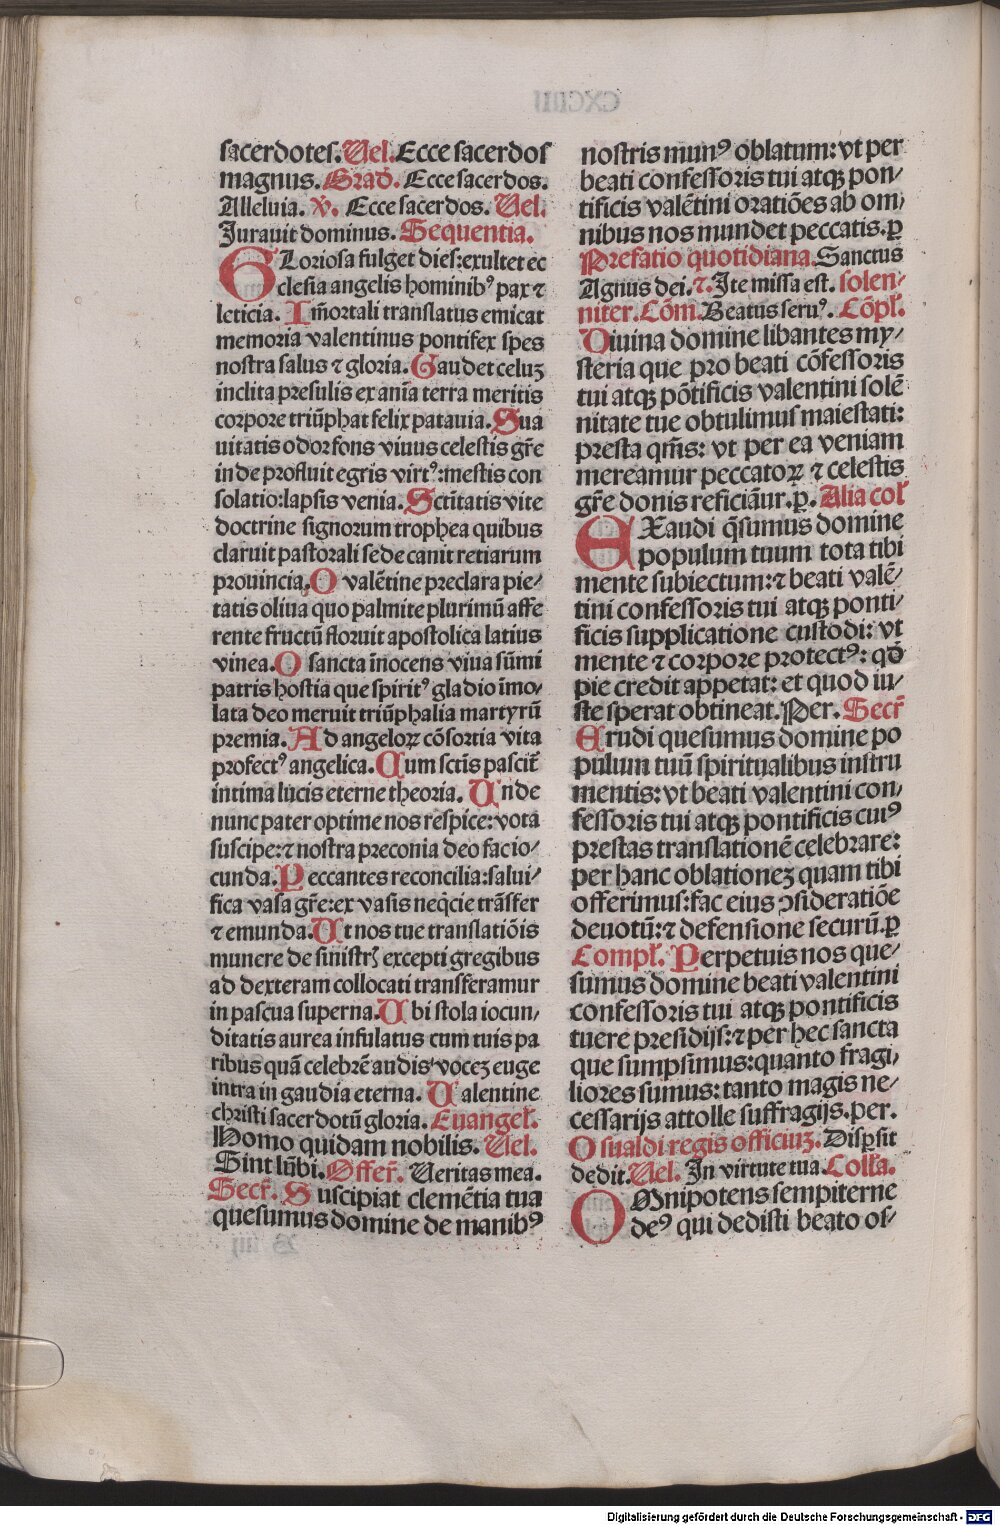 sacerdotes. Uel. Ecce sacerdos
magnus. Grad̛. Ecce sacerdos.
Alleluia. v̛. Ecce sacerdos. Uel.
Jurauit dominus. Sequentia.
GLoriosa fulget dies: exultet ec
clesia angelis hominibꝰ pax ⁊
leticia. Im̄ortali translatus emicat
memoria valentinus pontifex spes
nostra salus ⁊ gloria. Gaudet celuꝫ
inclita presulis ex ania terra meritis
corpore triūphat felix patauia. Sua
uitatis odor fons viuus celestis gr̄e
inde profluit egris virtꝰ: mestis con
solatio: lapsis venia. Sctītatis vite
doctrine signorum trophea quibus
claruit pastorali sede canit retiarum
prouincia. O valētine preclara pie⸗
tatis oliua quo palmite plurimū affe
rente fructū floruit apostolica latius
vinea. O sancta īnocens viua sūmi
patris hostia que spiritꝰ gladio īmo⸗
lata deo meruit triūphalia martyrū
premia. Ad angeloꝝ cōsortia vita
profectꝰ angelica. Cum sctīs pascit̄
intima lucis eterne theoria. Unde
nunc pater optime nos respice: vota
suscipe: ⁊ nostra preconia deo fac io⸗
cunda. Peccantes reconcilia: salui⸗
fica vasa gr̄e: ex vasis neq̄cie trāsfer
⁊ emunda. Ut nos tue translatiōis
munere de sinistrꝭ excepti gregibus
ad dexteram collocati transferamur
in pascua superna. Ubi stola iocun⸗
ditatis aurea infulatus cum tuis pa
ribus quā celebrē audis voceꝫ euge
intra in gaudia eterna. Ualentine
christi sacerdotū gloria. Euangel̛.
Homo quidam nobilis. Uel.
Sint lūbi. Offer̄. Ueritas mea.
Secr̄. Suscipiat clemētia tua
quesumus domine de manibꝰ
nostris munꝰ oblatum: vt per
beati confessoris tui atqꝫ pon⸗
tificis valētini oratiōes ab om⸗
nibus nos mundet peccatis. ꝑ
Prefatio quotidiana. Sanctus
Agnus dei. ⁊. Ite missa est. solen⸗
niter. Cōm. Beatus seruꝰ. Cōpl̛.
Diuina domine libantes my⸗
steria que pro beati cōfessoris
tui atqꝫ pōtificis valentini solē
nitate tue obtulimus maiestati:
presta qm̄s: vt per ea veniam
mereamur peccatoꝝ ⁊ celestis
gr̄e donis reficiāur. ꝑ. Alia col̛
EXaudi q̄sumus domine
populum tuum tota tibi
mente subiectum: ⁊ beati valē⸗
tini confessoris tui atqꝫ ponti⸗
ficis supplicatione custodi: vt
mente ⁊ corpore protectꝰ: qd̄
pie credit appetat: et quod iu⸗
ste sperat obtineat. Per. Secr̄
Erudi quesumus domine po
pulum tuū spiritualibus instru
mentis: vt beati valentini con⸗
fessoris tui atqꝫ pontificis cuiꝰ
prestas translationē celebrare:
per hanc oblationeꝫ quam tibi
offerimus: fac eius ꝯsideratiōe
deuotū: ⁊ defensione securū. ꝑ
Compl̛. Perpetuis nos que⸗
sumus domine beati valentini
confessoris tui atqꝫ pontificis
tuere presidijs: ⁊ per hec sancta
que sumpsimus: quanto fragi⸗
liores sumus: tanto magis ne⸗
cessarijs attolle suffragijs. per.
Osualdi regis officiuꝫ. Disꝑsit
dedit. Uel. In virtute tua. Coll̛a.
OMnipotens sempiterne
deꝰ qui dedisti beato os⸗
Digitalisierung gefördert durch die Deutsche Forschungsgemeinschaft - DFG